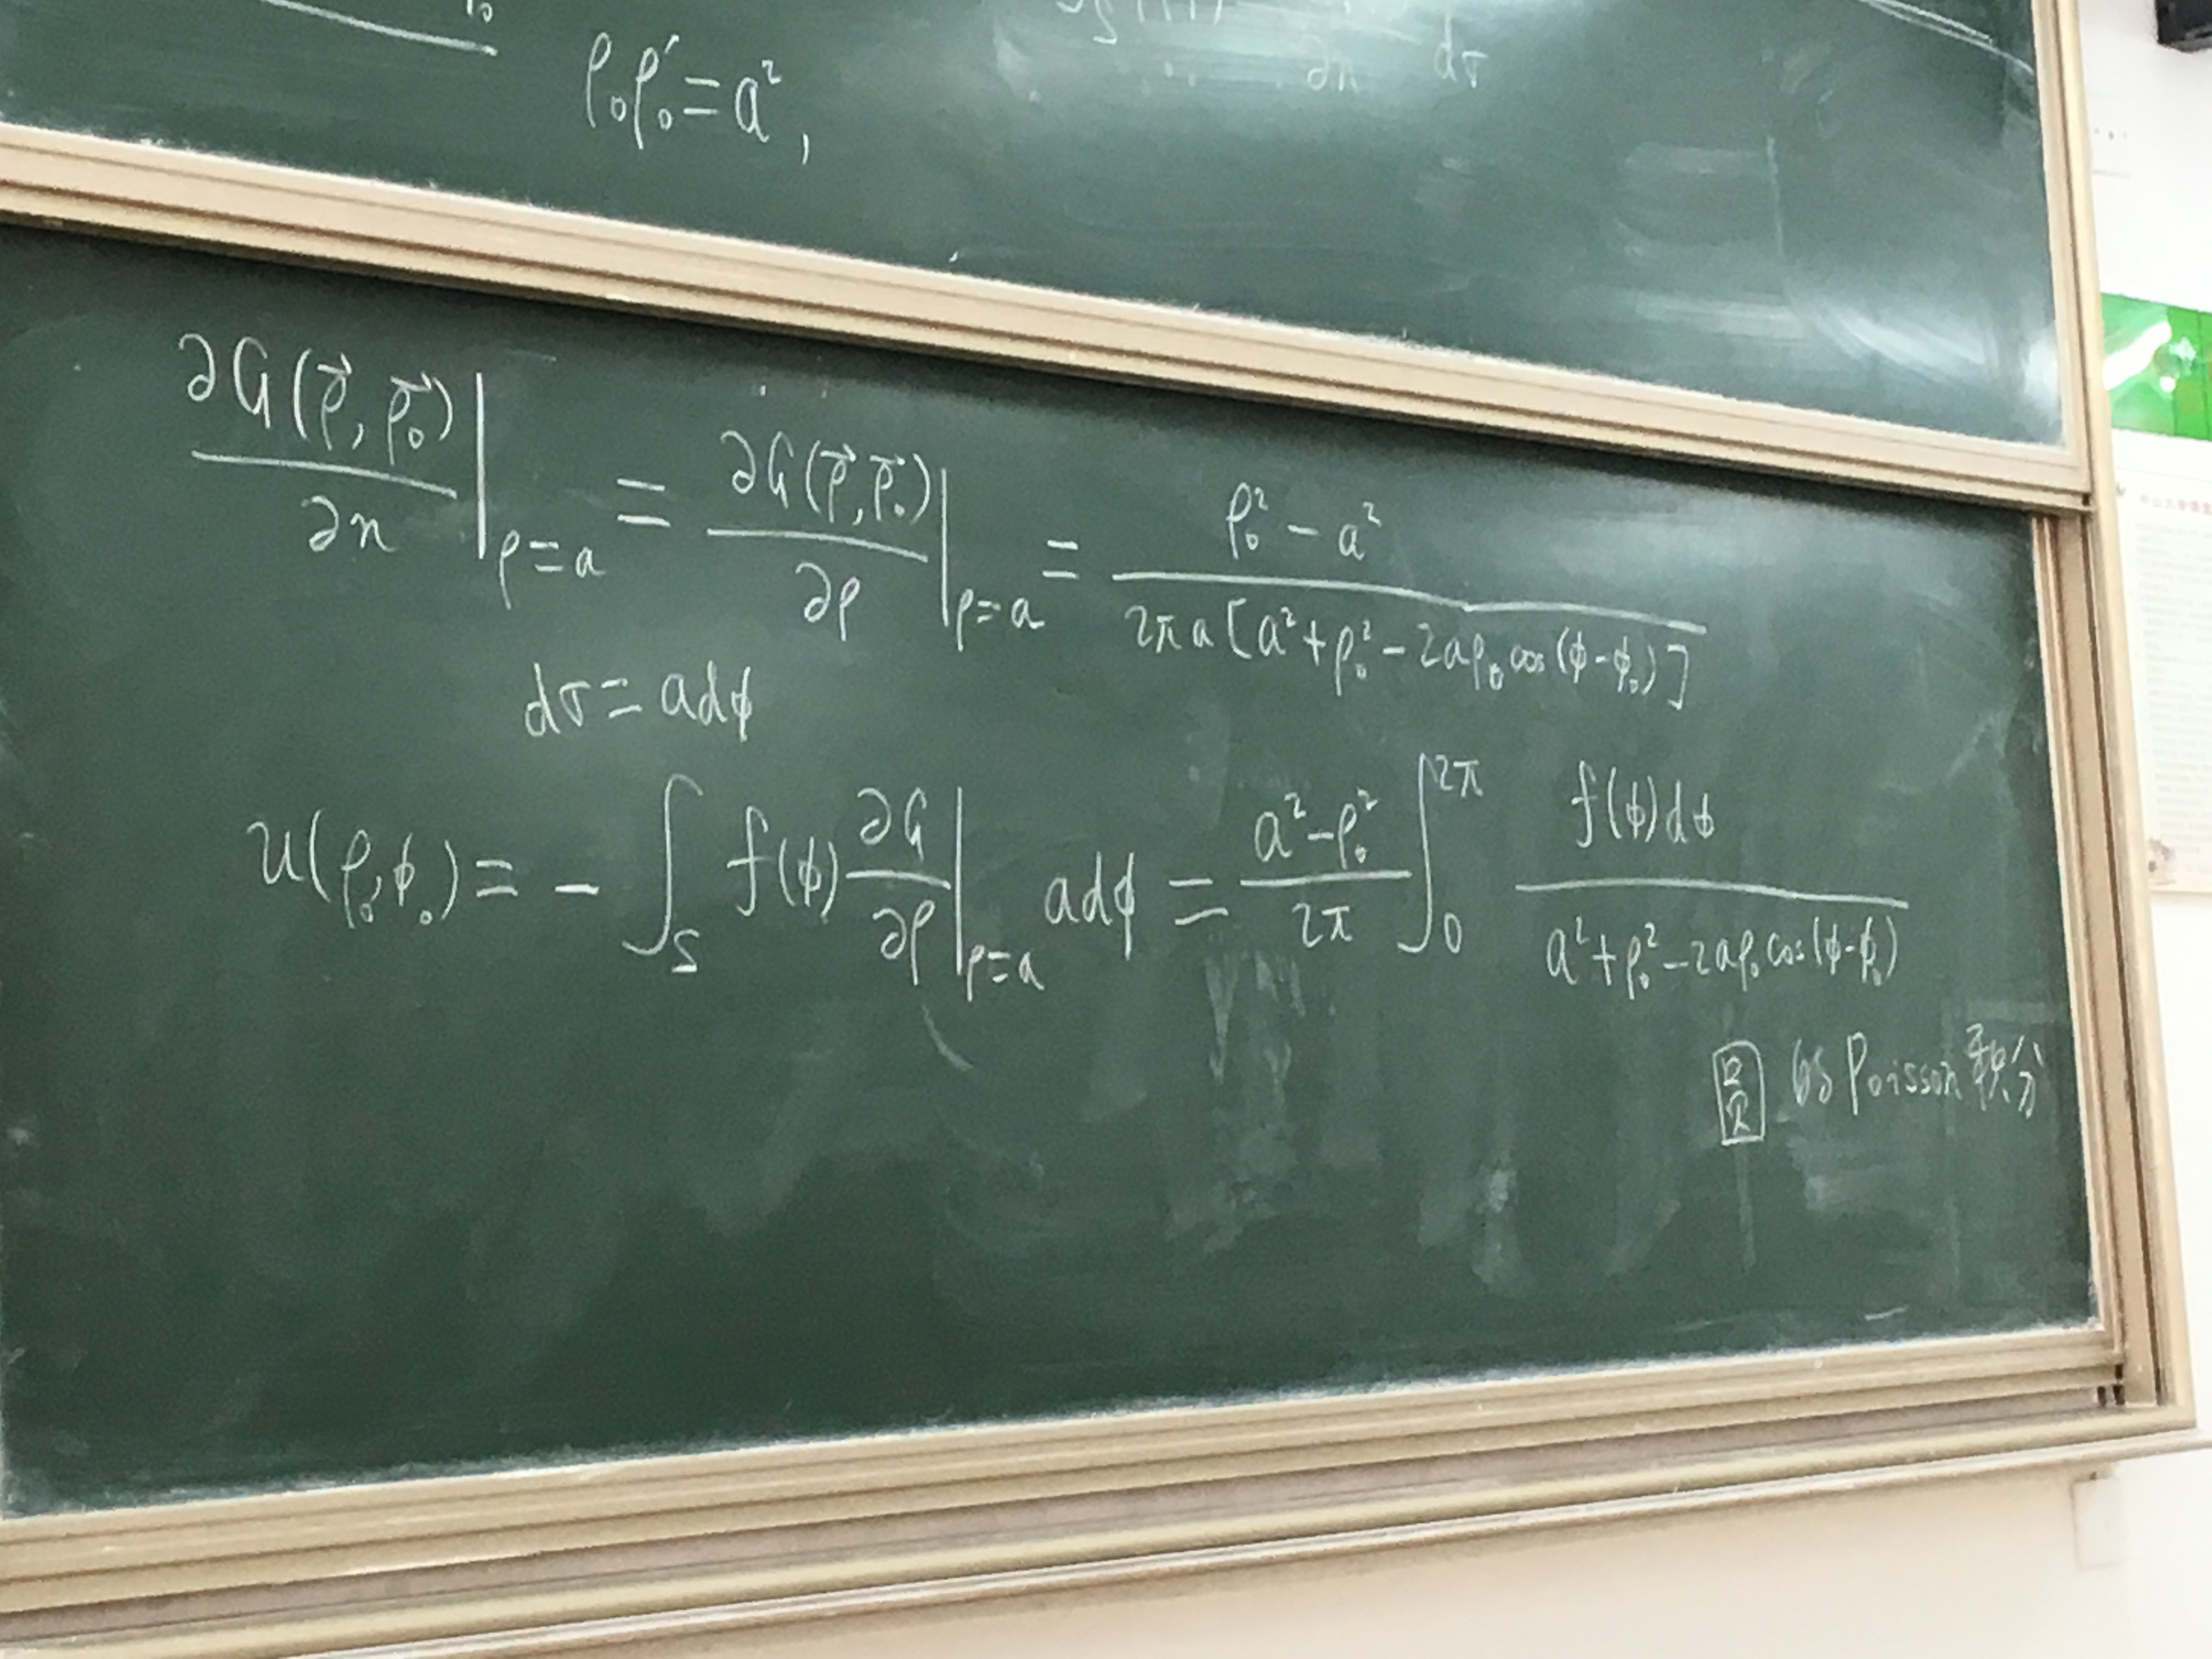 ∂n dσ
ρ₀ρ₀′=a²,
∂G(ρ⃗,ρ⃗₀)/∂n |ρ=a = ∂G(ρ⃗,ρ⃗₀)/∂ρ |ρ=a = (ρ₀²-a²)/(2πa[a²+ρ₀²-2aρ₀cos(ϕ-ϕ₀)])
dσ=adϕ
u(ρ₀,ϕ₀)= -∫_S f(ϕ) ∂G/∂ρ |ρ=a adϕ = (a²-ρ₀²)/(2π) ∫₀^{2π} f(ϕ)dϕ/(a²+ρ₀²-2aρ₀cos(ϕ-ϕ₀))
圆的Poisson积分